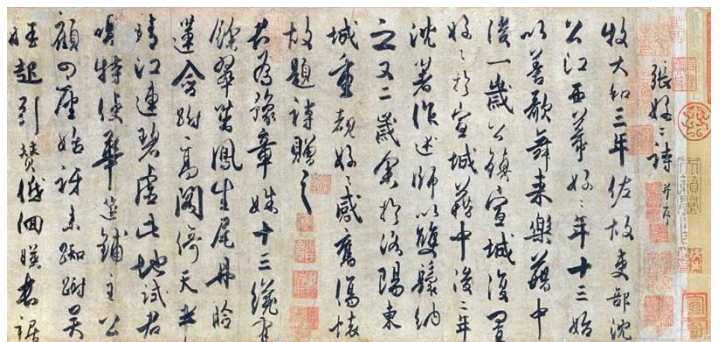 張好〻詩 并序
牧大和三年佐故吏部沈
公江西幕好〻年十三始
以善歌舞来樂籍中
後一歲公鎮宣城復置
好〻於宣城籍中後二年
沈著作述師以雙鬟納
之又二歲余於洛陽東
城重覩好〻感舊傷懷
故題詩贈之
君為豫章姝十三纔有
餘翠茁鳳生尾丹臉
蓮含跗高閣倚天半
晴江連碧虛此地試君
唱特使華筵鋪主公
顧四座始訝来踟躕吳
娃起引贊低佪暎長裾